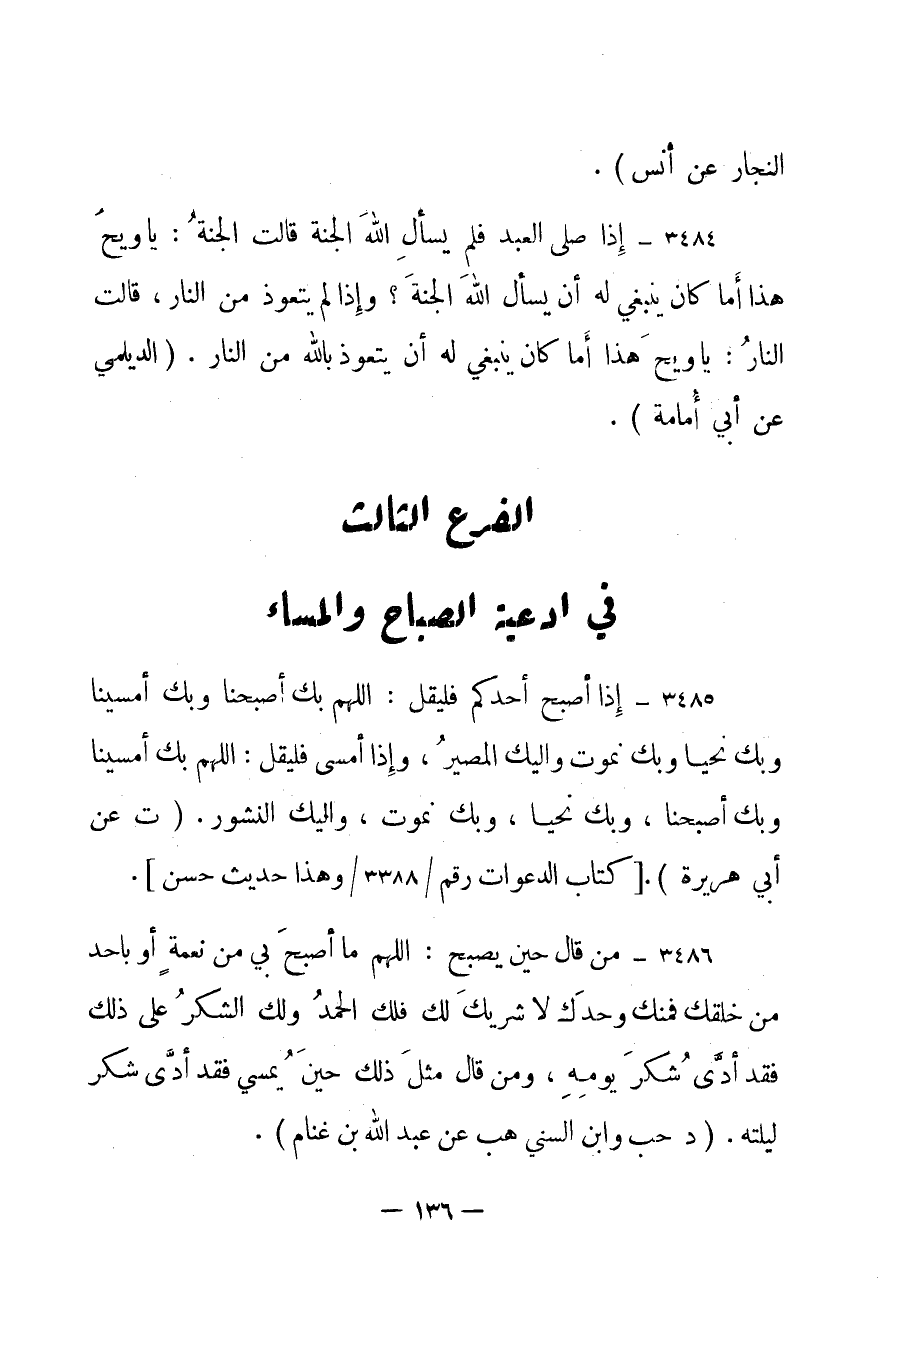 النجار عن أنس ) .
٣٤٨٤ ـ إذا صلى العبد فلم يسألِ اللهَ الجنة قالت الجنةُ : يا ويحَ
هذا أما كان ينبغي له أن يسأل اللهَ الجنةَ ؟ وإذا لم يتعوذ من النار ، قالت
النارُ : يا ويحَ هذا أما كان ينبغي له أن يتعوذ بالله من النار . ( الديلمي
عن أبي أُمامة ) .
الفرع الثالث
في ادعية الصباح والمساء
٣٤٨٥ ـ إذا أصبح أحدكم فليقل : اللهم بك أصبحنا وبك أمسينا
وبك نحيا وبك نموت واليك المصيرُ ، وإذا أمسى فليقل : اللهم بك أمسينا
وبك أصبحنا ، وبك نحيا ، وبك نموت ، واليك النشور . ( ت عن
أبي هريرة ) . [ كتاب الدعوات رقم / ٣٣٨٨ / وهذا حديث حسن ] .
٣٤٨٦ ـ من قال حين يصبح : اللهم ما أصبحَ بي من نعمةٍ أو باحد
من خلقك فمنك وحدَك لا شريكَ لك فلك الحمدُ ولك الشكرُ على ذلك
فقد أدَّى شُكرَ يومِهِ ، ومن قال مثلَ ذلك حينَ يُمسي فقد أدَّى شكر
ليلته . ( د حب وابن السني هب عن عبد الله بن غنام ) .
— ١٣٦ —